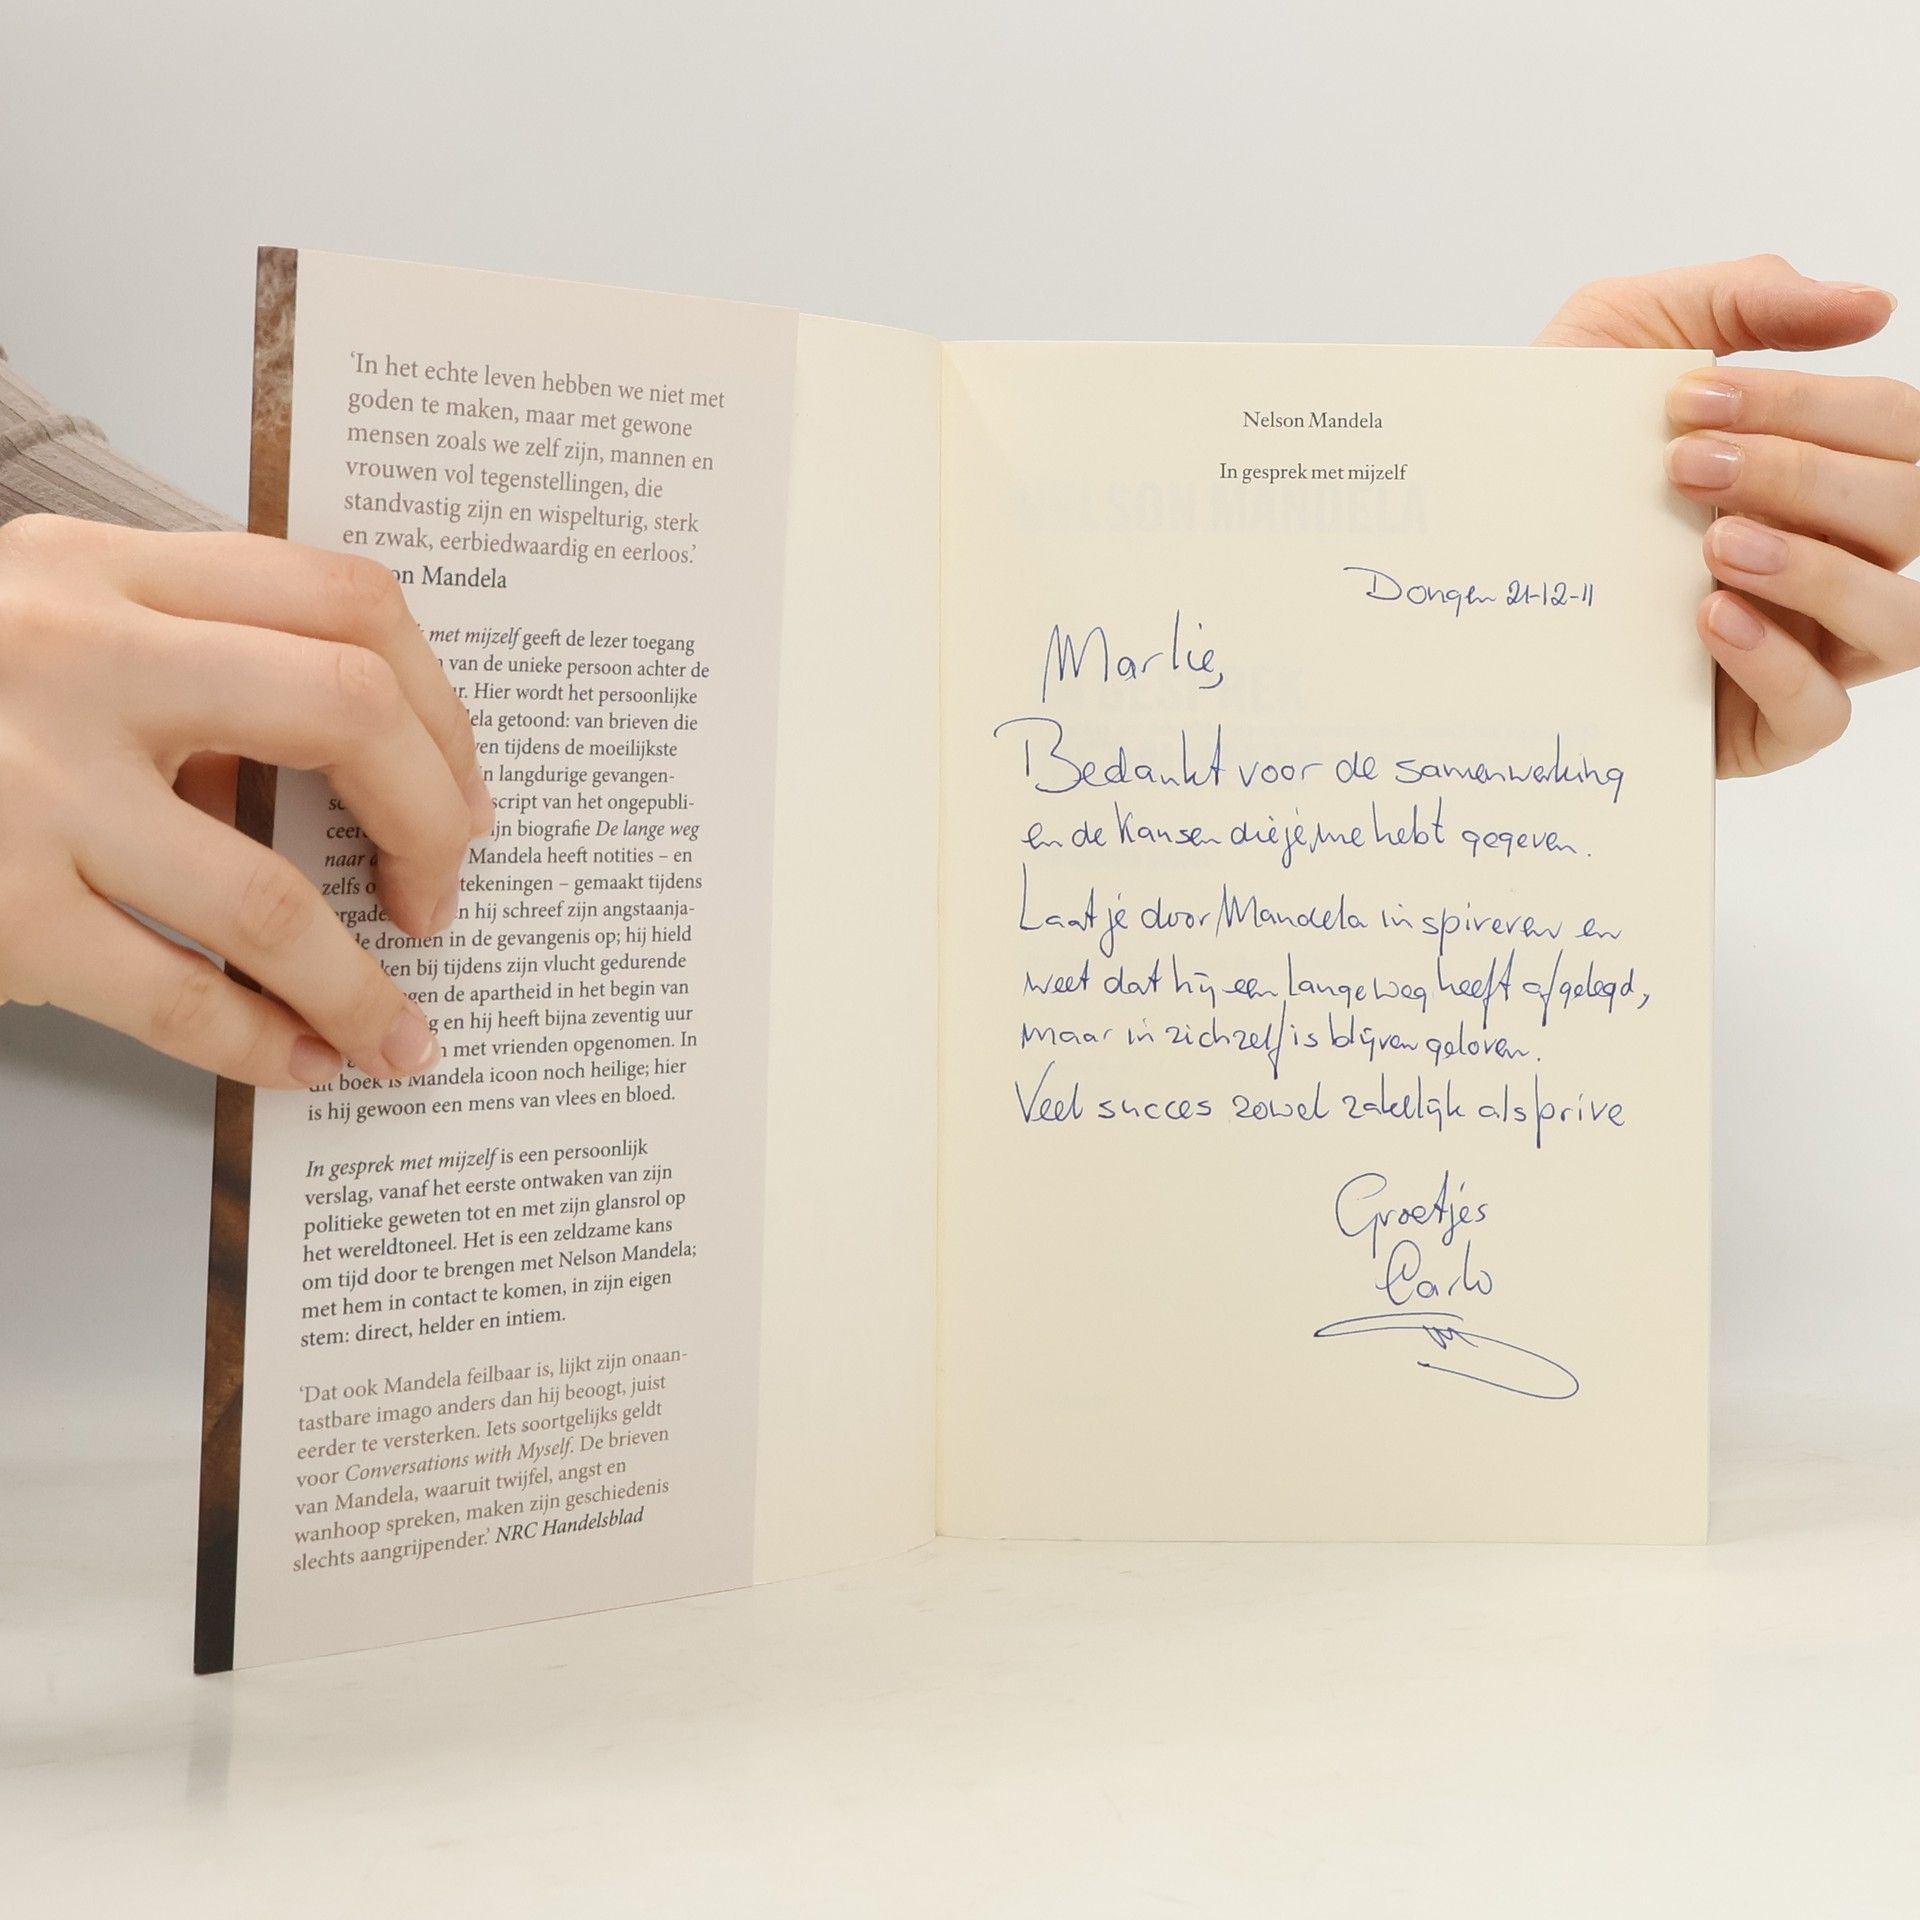 ‘In het echte leven hebben we niet met
goden te maken, maar met gewone
mensen zoals we zelf zijn, mannen en
vrouwen vol tegenstellingen, die
standvastig zijn en wispelturig, sterk
en zwak, eerbiedwaardig en eerloos.’
on Mandela
met mijzelf geeft de lezer toegang
van de unieke persoon achter de
Hier wordt het persoonlijke
getoond: van brieven die
tijdens de moeilijkste
langdurige gevangen-
script van het ongepubli-
biografie De lange weg
naar Mandela heeft notities – en
zelfs tekeningen – gemaakt tijdens
hij schreef zijn angstaanja-
dromen in de gevangenis op; hij hield
bij tijdens zijn vlucht gedurende
de apartheid in het begin van
en hij heeft bijna zeventig uur
met vrienden opgenomen. In
dit boek is Mandela icoon noch heilige; hier
is hij gewoon een mens van vlees en bloed.
In gesprek met mijzelf is een persoonlijk
verslag, vanaf het eerste ontwaken van zijn
politieke geweten tot en met zijn glansrol op
het wereldtoneel. Het is een zeldzame kans
om tijd door te brengen met Nelson Mandela;
met hem in contact te komen, in zijn eigen
stem: direct, helder en intiem.
‘Dat ook Mandela feilbaar is, lijkt zijn onaan-
tastbare imago anders dan hij beoogt, juist
eerder te versterken. Iets soortgelijks geldt
voor Conversations with Myself. De brieven
van Mandela, waaruit twijfel, angst en
wanhoop spreken, maken zijn geschiedenis
slechts aangrijpender.’ NRC Handelsblad
Nelson Mandela
In gesprek met mijzelf
Dongen 21-12-11
Marlie,
Bedankt voor de samenwerking
en de kansen die je me hebt gegeven.
Laat je door Mandela inspireren en
weet dat hij een lange weg heeft afgelegd,
maar in zichzelf is blijven geloven.
Veel succes zowel zakelijk als prive
Groetjes
Carlo